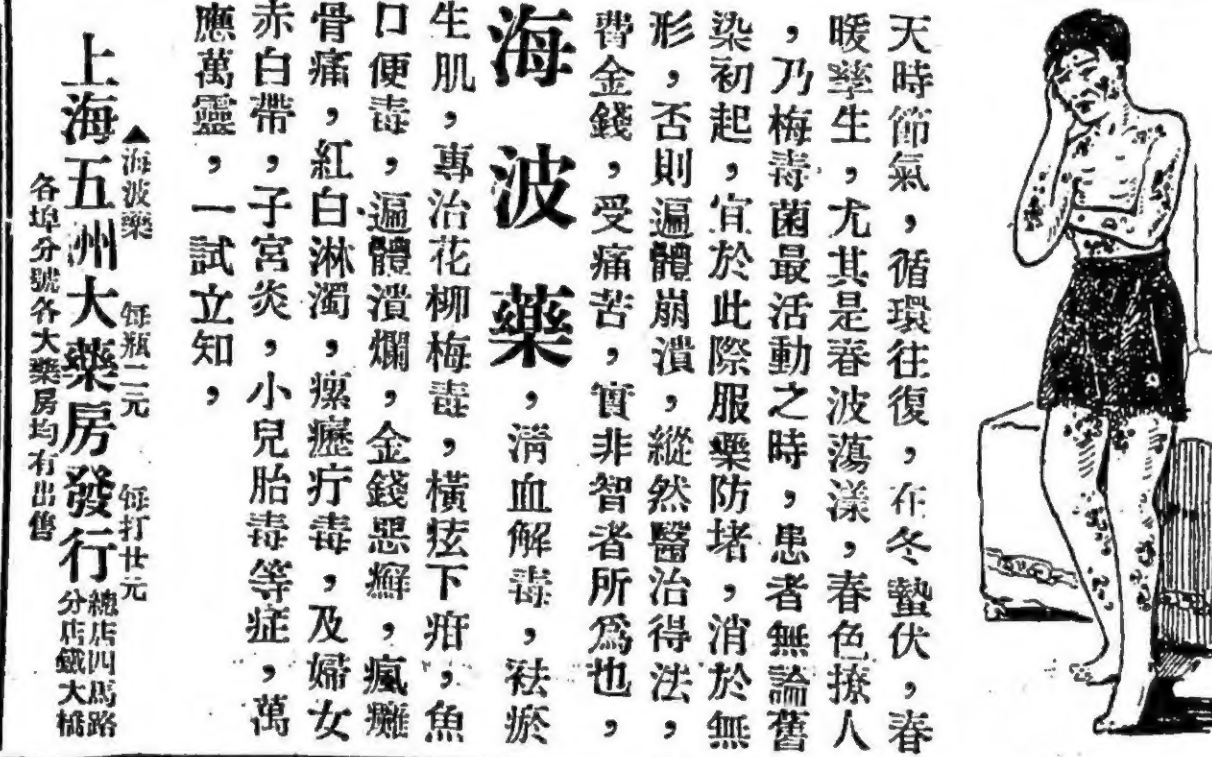 天時節氣，循環往復，在冬蟄伏，春
暖孳生，尤其是春波蕩漾，春色撩人
，乃梅毒菌最活動之時，患者無論舊
染初起，宜於此際服藥防堵，消於無
形，否則遍體崩潰，縱然醫治得法，
費金錢，受痛苦，實非智者所爲也，
海波藥，淸血解毒，祛瘀
生肌，專治花柳梅毒，橫痃下疳，魚
口便毒，遍體潰爛，金錢惡癬，瘋癱
骨痛，紅白淋濁，瘰癧疔毒，及婦女
赤白帶，子宮炎，小兒胎毒等症，萬
應萬靈，一試立知，
▲海波藥 每瓶二元 每打廿元
上海五洲大藥房發行
總店四馬路
分店鐵大橋
各埠分號各大藥房均有出售